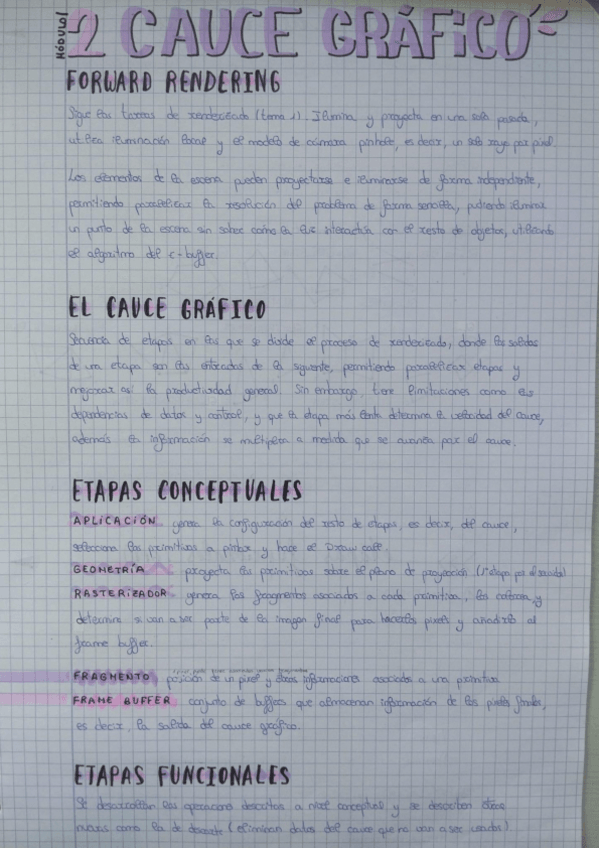 MÓDULO 1
2 CAUCE GRÁFICO
FORWARD RENDERING
Sigue las tareas de renderizado (tema 1). Ilumina y proyecta en una sola pasada,
utiliza iluminación local y el modelo de cámara pinhole, es decir, un solo rayo por pixel.
Los elementos de la escena pueden proyectarse e iluminarse de forma independiente,
permitiendo paralelizar la resolución del problema de forma sencilla, pudiendo iluminar
un punto de la escena sin saber cómo la luz interactúa con el resto de objetos, utilizando
el algoritmo del z-buffer.
EL CAUCE GRÁFICO
Secuencia de etapas en las que se divide el proceso de renderizado, donde las salidas
de una etapa son las entradas de la siguiente, permitiendo paralelizar etapas y
mejorar así la productividad general. Sin embargo, tiene limitaciones como las
dependencias de datos y control, y que la etapa más lenta determina la velocidad del cauce,
además la información se multiplica a medida que se avanza por el cauce.
ETAPAS CONCEPTUALES
APLICACIÓN genera la configuración del resto de etapas, es decir, del cauce,
selecciona las primitivas a pintar y hace el Draw call.
GEOMETRÍA proyecta las primitivas sobre el plano de proyección
RASTERIZADOR genera los fragmentos asociados a cada primitiva, los colorea y
determina si van a ser parte de la imagen final para hacerlos pixels y añadirlo al
frame buffer.
FRAGMENTO posición de un pixel y otras informaciones asociados a una primitiva
FRAME BUFFER conjunto de buffers que almacenan información de los pixels finales,
es decir, la salida del cauce gráfico.
ETAPAS FUNCIONALES
Se desarrollan las operaciones descritas a nivel conceptual y se describen otras
nuevas como la de descarte (eliminan datos del cauce que no van a ser usados)